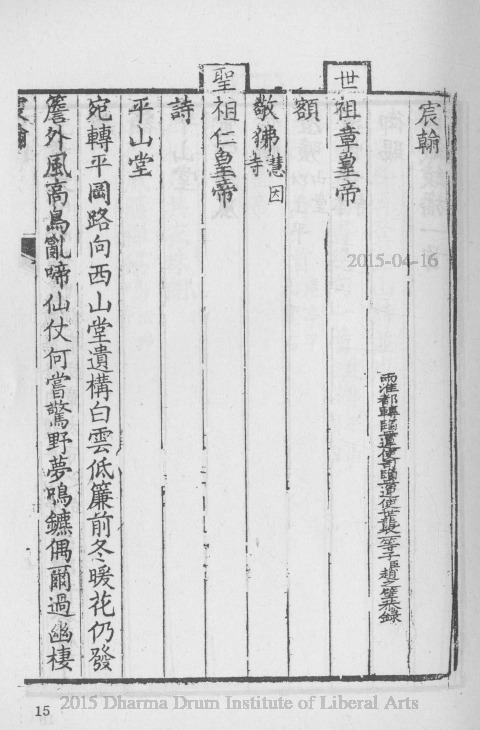 宸翰
兩淮都轉鹽運使司鹽運使世襲一等子臣趙之壁恭錄
世祖章皇帝
額
敬佛 慧因寺
聖祖仁皇帝
詩
平山堂
宛轉平岡路向西山堂遺構白雲低簾前冬暖花仍發
簷外風高鳥亂啼仙仗何嘗驚野夢鳴鑣偶爾過幽棲
宸翰
15
2015-04-16
2015 Dharma Drum Institute of Liberal Arts